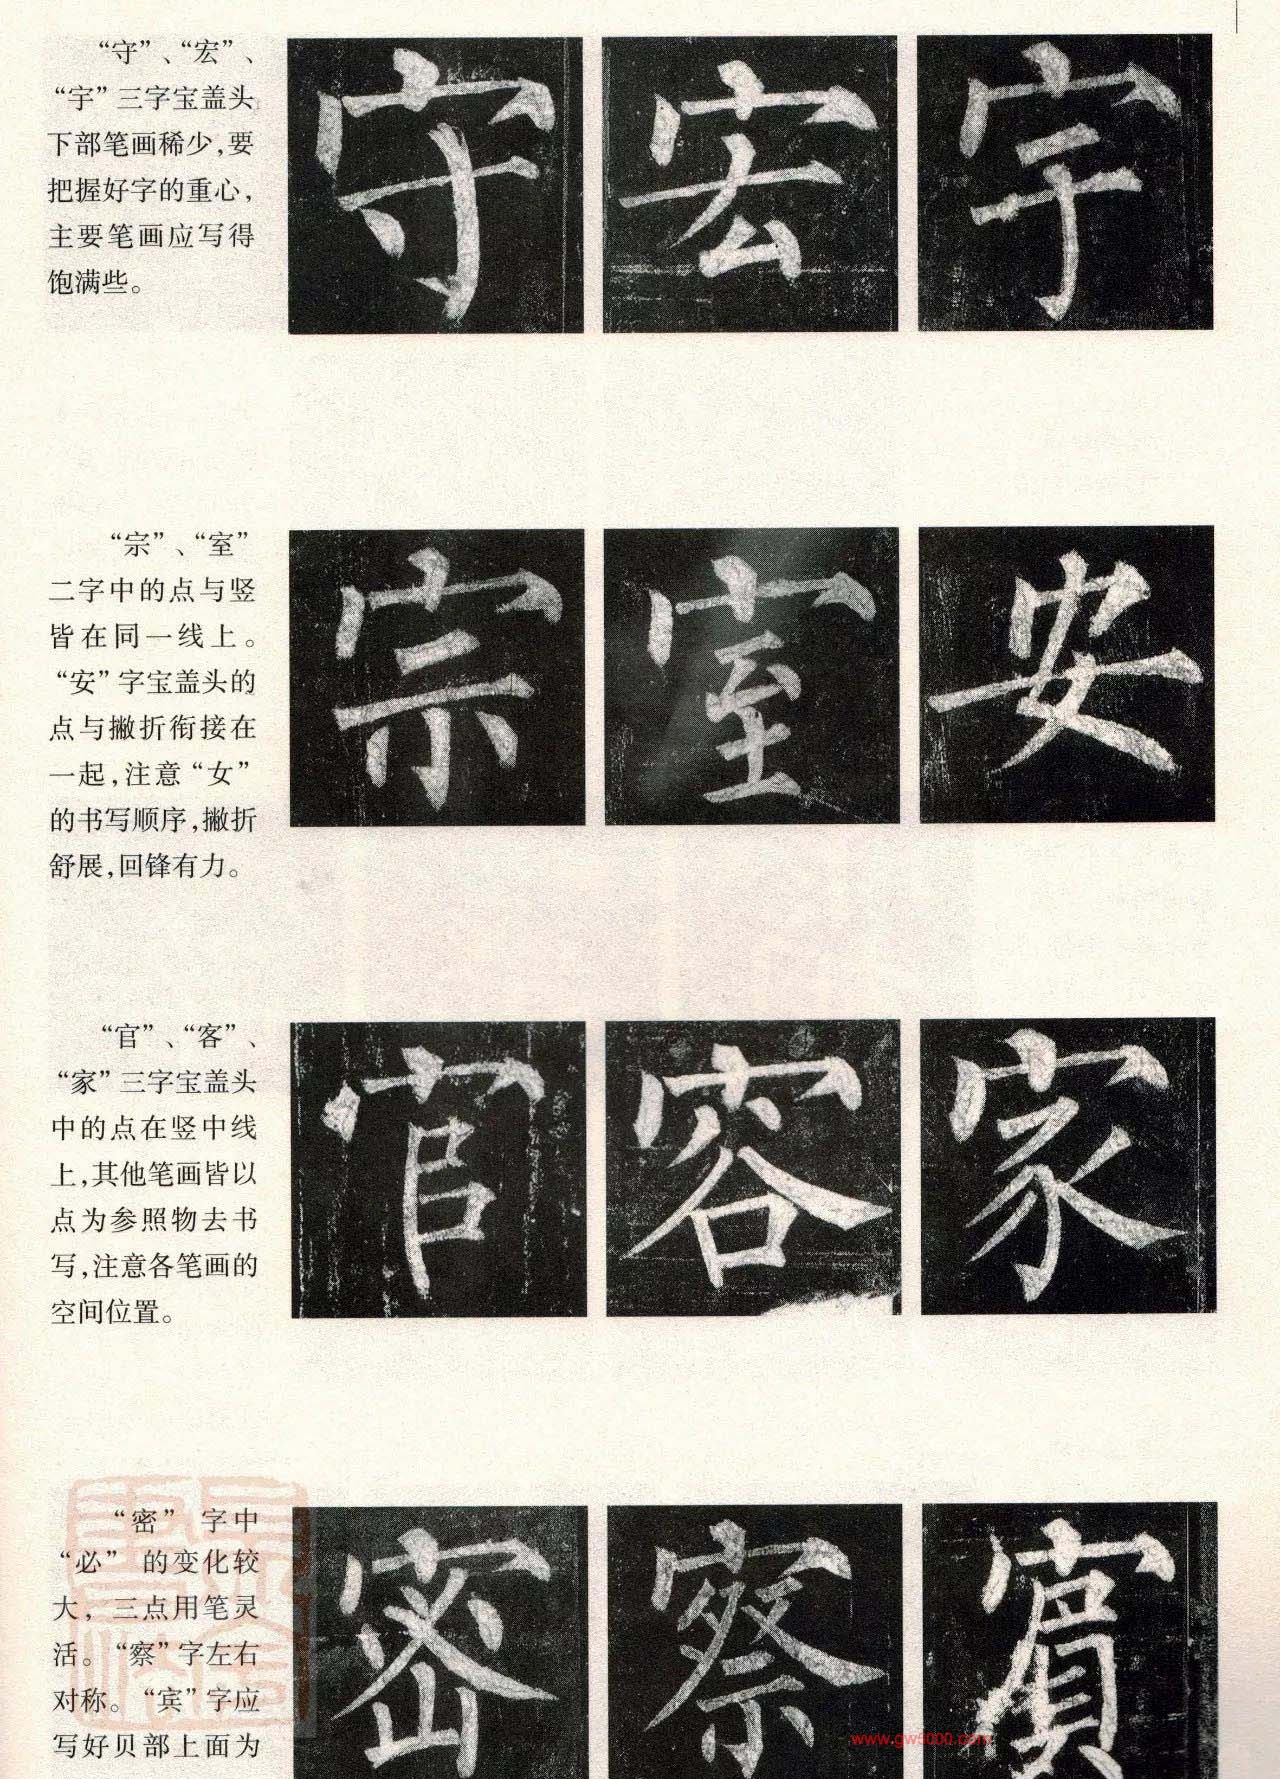 “守”、“宏”、
“宇”三字宝盖头
下部笔画稀少,要
把握好字的重心,
主要笔画应写得
饱满些。
守 宏 宇
“宗”、“室”
二字中的点与竖
皆在同一线上。
“安”字宝盖头的
点与撇折衔接在
一起,注意“女”
的书写顺序,撇折
舒展,回锋有力。
宗 室 安
“官”、“客”、
“家”三字宝盖头
中的点在竖中线
上,其他笔画皆以
点为参照物去书
写,注意各笔画的
空间位置。
官 容 家
“密” 字中
“必” 的变化较
大, 三点用笔灵
活。“察”字左右
对称。“宾”字应
写好贝部上面为
密 察 賓
www.gw5000.com